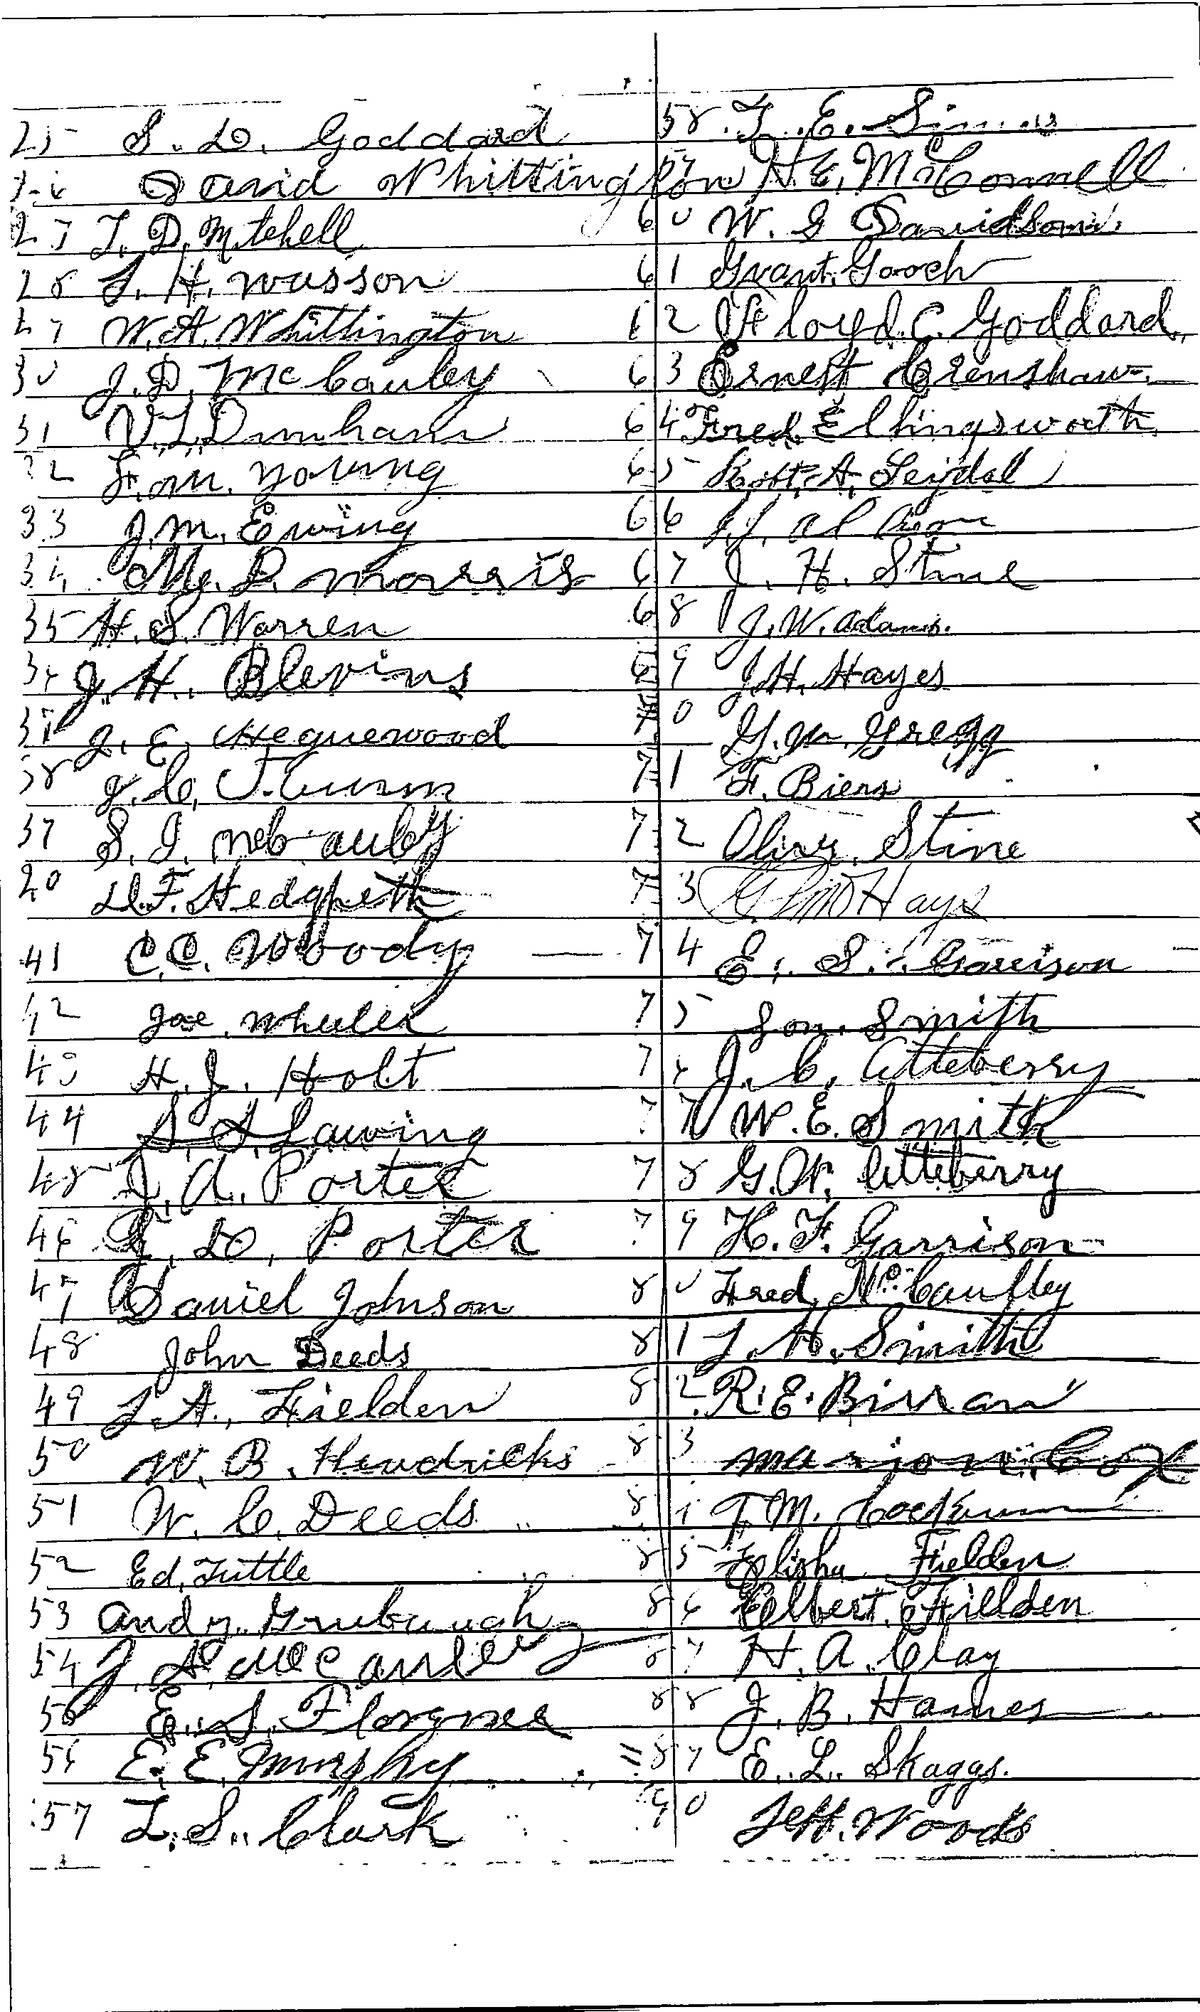 25 S. D. Goddard
26 David Whittington
27 T. D. Mitchell
28 L. H. Wasson
29 W. A. Whittington
30 J. D. McCauley
31 V. L. Dunham
32 F. M. Young
33 J. M. Ewing
34 D. Morris
35 H. S. Warren
36 J. H. Blevins
37 J. E. Hequewood
38 J. C.
39 S. J. McCauley
40 D. F. Hedgpeth
41 C. C. Woody
42 Joe Wheeler
43 H. J. Holt
44 S. S. Lawing
45 J. A. Porter
46 D. Porter
47 Daniel Johnson
48 John Deeds
49 L. A. Fielden
50 W. B. Hendricks
51 W. C. Deeds
52 Ed. Tuttle
53 Andy
54 J. A. McCauley
55 E. S. Florence
56 E. E. Murphy
57 L. S. Clark
58 E.
59 H. E. McConnell
60 W. G Davidson
61 Grant Gooch
62 Floyd C. Goddard
63 Ernest Crenshaw
64 Fred Ellingsworth
65 Robt. A. Leydal
66
67 J. H. Stine
68 J. W. Adams
69 J. H. Hayes
70 G. M. Gregg
71 F. Biens
72 Oliver Stine
73 Hays
74 E. S. Garrison
75 Lon Smith
76 J. C. Atteberry
77 W. E. Smith
78 G. W. Atteberry
79 H. F. Garrison
80 Fred McCaulley
81 L. H. Smith
82 R. E. Birran
83 Marion Cox
84 T. M. Cockrum
85 Elisha Fielden
86 Elbert Fillden
87 H. A. Clay
88 J. B. Haines
89 E. L. Skaggs
90 Jeff. Woods